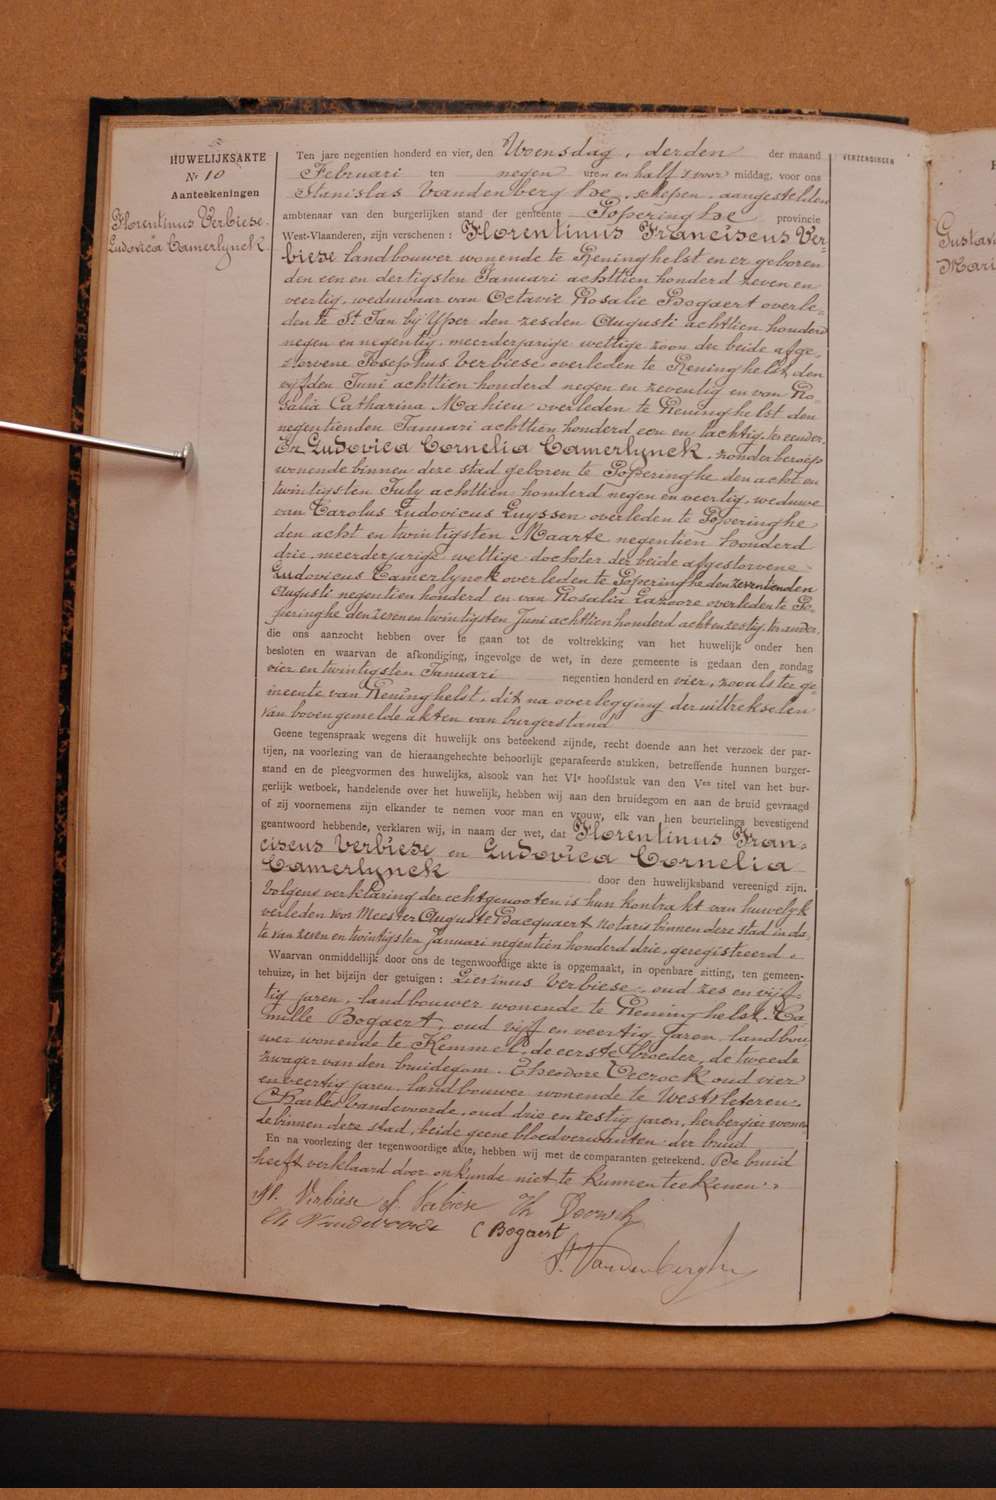 HUWELIJKSAKTE
N: 10
Aanteekeningen
Florentinus Verbiese.
Ludovica Camerlynck.
Ten jare negentien honderd en vier, den Woensdag, derden der maand
Februari ten negen uren en half voor middag, voor ons
Stanislas Vandenberghe, schepen, aangestelden
ambtenaar van den burgerlijken stand der gemeente Poperinghe provincie
West-Vlaanderen, zijn verschenen: Florentinus Franciscus Ver-
biese landbouwer wonende te Reninghelst en er geboren
den een en dertigsten Januari achttien honderd zeven en
veertig, weduwaar van Octavie Rosalie Bogaert overle-
den te St Jan bij Yper den zesden Augusti achttien honderd
negen en negentig, meerderjarige wettige zoon der beide afge-
storvene Josephus Verbiese overleden te Reninghelst den
vijfden Juni achttien honderd negen en zeventig en van Ro-
salia Catharina Mahieu overleden te Reninghelst den
negentienden Januari achttien honderd een en tachtig, ter eender,
En Ludovica Cornelia Camerlynck, zonder beroep
wonende binnen deze stad geboren te Poperinghe den acht en
twintigsten July achttien honderd negen en veertig, weduwe
van Carolus Ludovicus Luyssen overleden te Poperinghe
den acht en twintigsten Maarte negentien honderd
drie, meerderjarige wettige dochter der beide afgestorvene
Ludovicus Camerlynck overleden te Poperinghe den zeventienden
Augusti negentien honderd en van Rosalia Lazoore overleden te Po-
peringhe den zeven en twintigsten Juni achttien honderd acht en zestig, ter ander,
die ons aanzocht hebben over te gaan tot de voltrekking van het huwelijk onder hen
besloten en waarvan de afkondiging, ingevolge de wet, in deze gemeente is gedaan den zondag
vier en twintigsten Januari negentien honderd en vier, zooals ter ge
meente van Reninghelst, dit na overlegging der uittrekselen
van bovengemelde akten van burgerstand
Geene tegenspraak wegens dit huwelijk ons beteekend zijnde, recht doende aan het verzoek der par-
tijen, na voorlezing van de hieraangehechte behoorlijk geparafeerde stukken, betreffende hunnen burger-
stand en de pleegvormen des huwelijks, alsook van het VIe hoofdstuk van den Ven titel van het bur-
gerlijk wetboek, handelende over het huwelijk, hebben wij aan den bruidegom en aan de bruid gevraagd
of zij voornemens zijn elkander te nemen voor man en vrouw, elk van hen beurtelings bevestigend
geantwoord hebbende, verklaren wij, in naam der wet, dat Florentinus Fran-
ciscus Verbiese en Ludovica Cornelia
Camerlynck door den huwelijksband vereenigd zijn.
Volgens verklaring der echtgenooten is hun kontrakt van huwelijk
verleden voor Meester Auguste Bacquaert notaris binnen deze stad in da-
te van zeven en twintigsten Januari negentien honderd drie, geregistreerd.
Waarvan onmiddelijk door ons de tegenwoordige akte is opgemaakt, in openbare zitting, ten gemeen-
tehuize, in het bijzijn der getuigen: Lievinus Verbiese, oud zes en vijf-
tig jaren, landbouwer wonende te Reninghelst, Ca
mille Bogaert, oud vijf en veertig jaren, landbou-
wer wonende te Kemmel, de eerste broeder, de tweede
zwager van den bruidegom, Theodore Decrock oud vier
en veertig jaren, landbouwer wonende te Westvleteren,
Charles Vandevoorde, oud drie en zestig jaren, herbergier wonen
de binnen deze stad, beide geene bloedverwanten der bruid
En na voorlezing der tegenwoordige akte, hebben wij met de comparanten geteekend. De bruid
heeft verklaard door onkunde niet te kunnen teekenen.
Verbiese Verbiese Th
Ch Vandevoorde C Bogaert
St Vandenberghe
VERZENDINGEN
Gustav
Mari